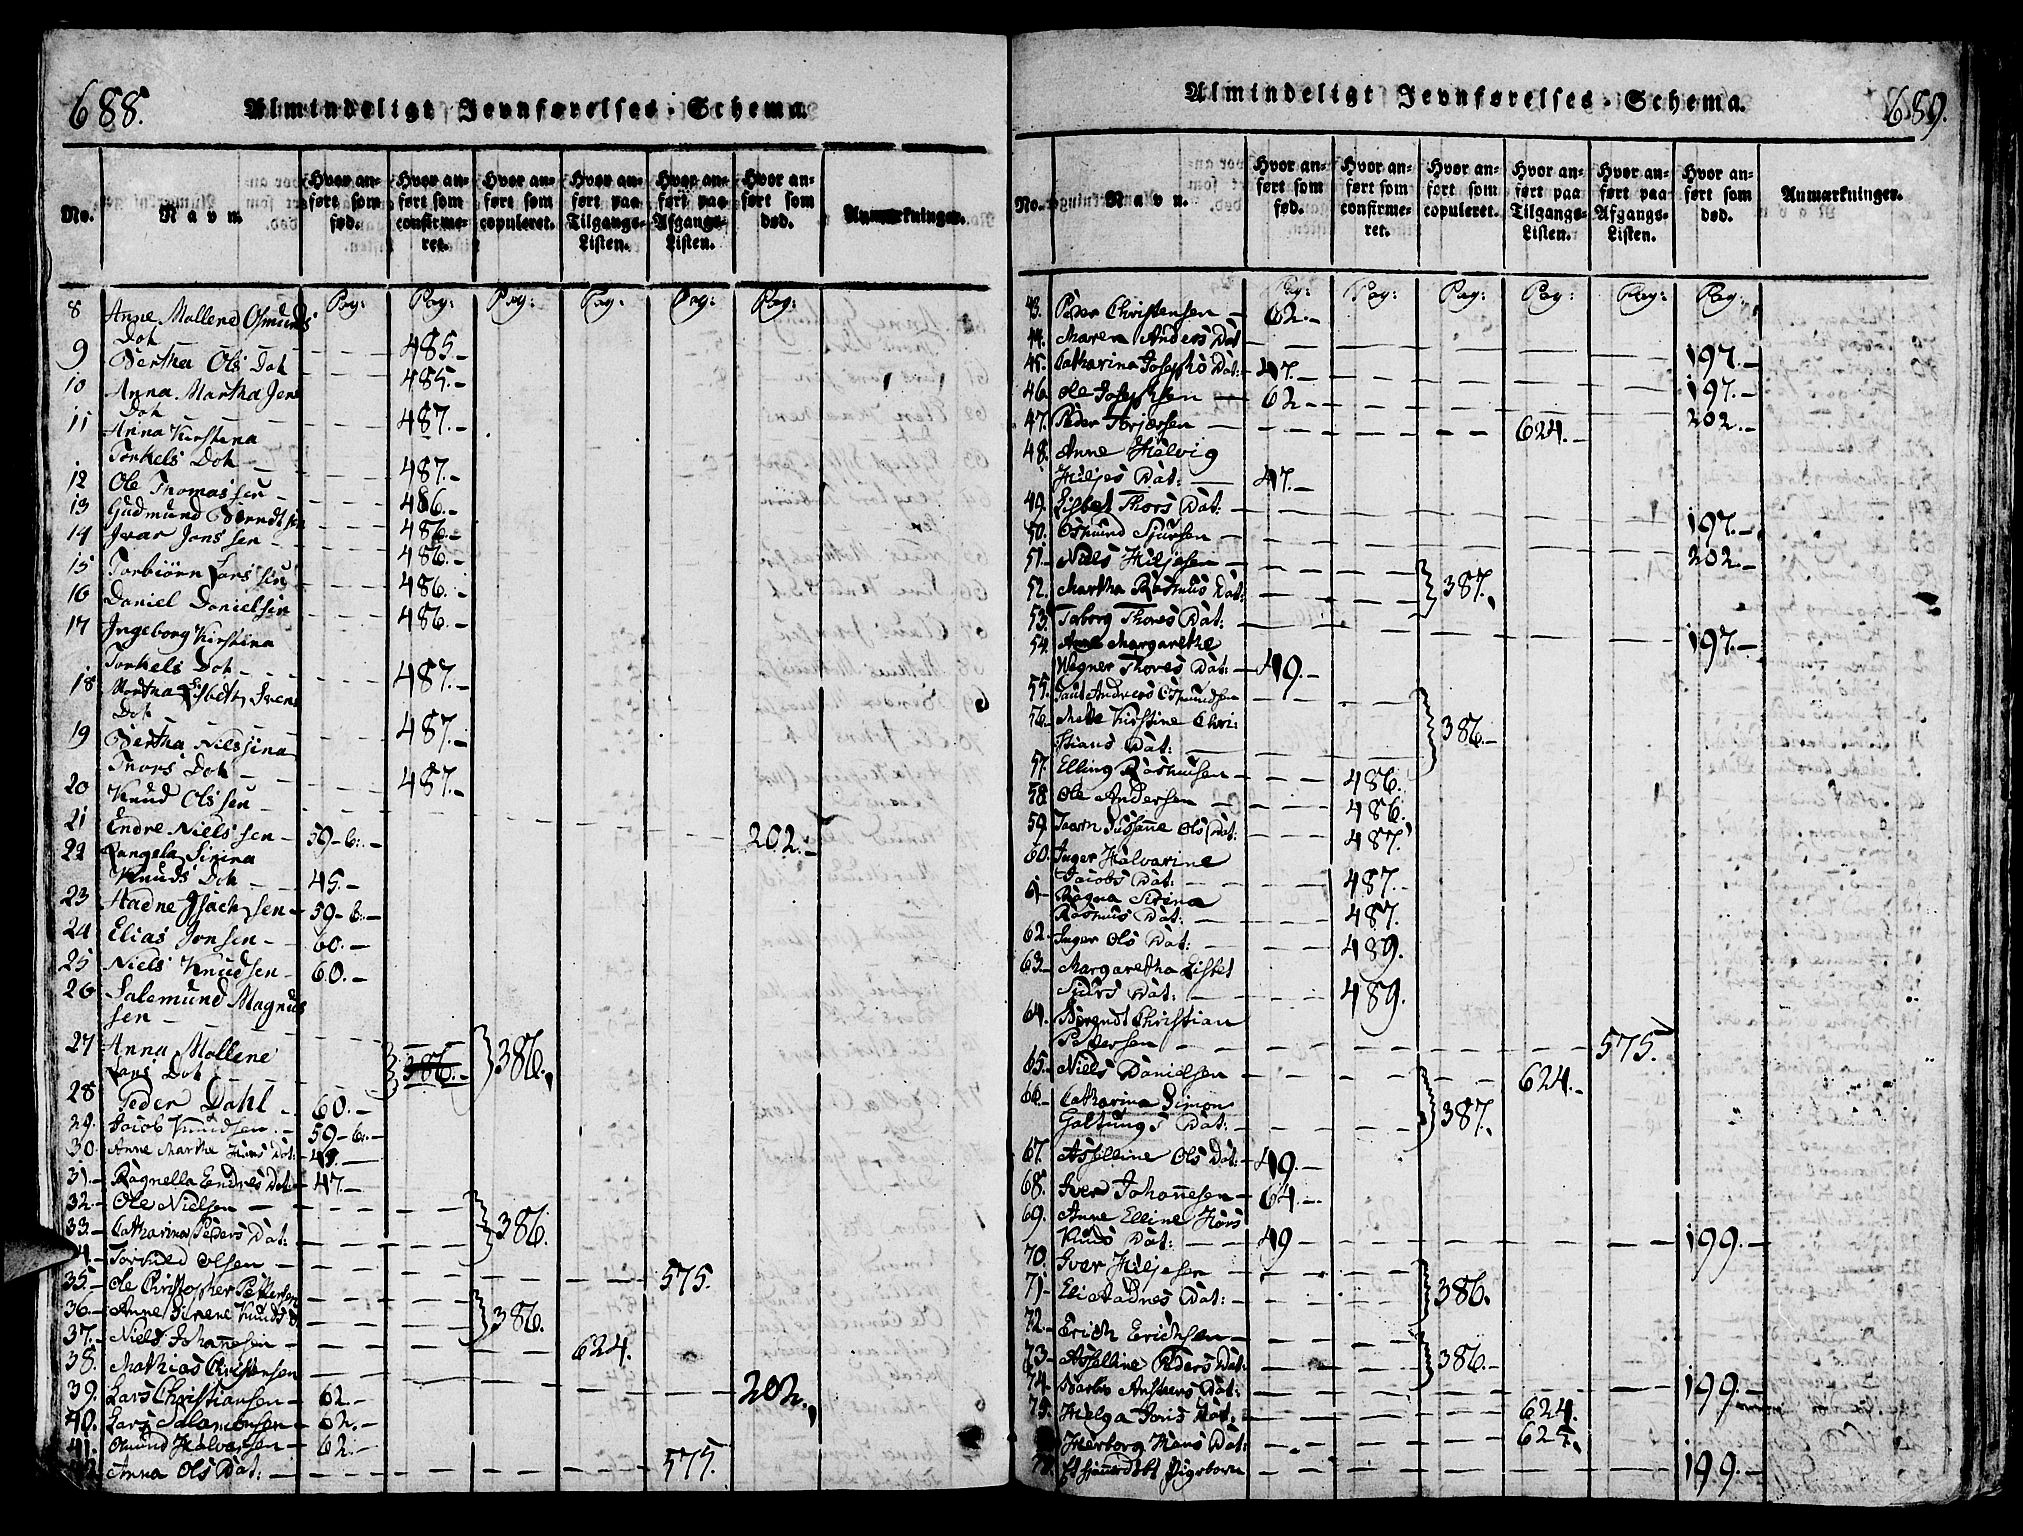 688.
Almindeligt Jevnførelses-Schema.
No.
Navn.
Hvor anført som fød.
Hvor anført som confirmeret.
Hvor anført som copuleret.
Hvor anført paa Tilgangs-Listen.
Hvor anført paa Afgangs-Listen.
Hvor anført som død.
Anmarkninger.
Pag: Pag: Pag: Pag: Pag: Pag:
8 Anne Mallene Osmunds
Dot 485.
9 Bertha Ols Dot 485.
10 Anna Martha Jens
Dot 487.
11 Anna Kirstina
Torkels Dot 487.
12 Ole Thomassen 486.
13 Gudmund Berndtsen 486.
14 Ivar Jonssen 486.
15 Torbiörn Larssen 486.
16 Daniel Danielsen 486.
17 Ingeborg Kirstina
Torkels Dot 487.
18 Martha Lisbeth Ivers
Dot 487.
19 Bertha Nilssina
Thors Dot 487.
20 Knud Olssen 202.
21 Endre Nielssen 59-b.
22 Rangela Sirina
Knuds Dot 45.
23 Aadne Isachsen 59-b.
24 Elias Jonsen 60.
25 Niels Knudsen 60.
26 Salemund Magnus
sen
27 Anna Mallene 386. 386.
Lars Dot
28 Peder Dahl 60.
29. Jacob Knudsen 59-b.
30. Anne Marthe Dot: 47.
31. Ragnella Endres Dat: 47.
32. Ole Nielsen 386.
33. Catharina Peders Dat:
34. Torkild Olsen 575.
35. Ole Christopher Pettersen 386.
36. Anne Sirene Knuds D
37. Niels Johannesen 624.
38. Mathias Christensen 202.
39. Lars Christiansen 62.
40. Lars Salamonsen 62.
41. Omund Halvorsen 62.
42 Anna Ols Dat: 575.
Almindeligt Jevnførelses-Schema.
689.
No.
Navn.
Hvor anført som fød.
Hvor anført som confirmeret.
Hvor anført som copuleret.
Hvor anført paa Tilgangs-Listen.
Hvor anført paa Afgangs-Listen.
Hvor anført som død.
Anmarkninger.
Pag: Pag: Pag: Pag: Pag: Pag:
43. Peder Christensen 62.
44. Maren Anders Dat 197.
45. Catharina Josephs Dat: 47.
46. Ole Josephsen 62. 197.
47. Peder Torjersen 624. 202.
48. Anne Helvig
Hiljes Dat: 47.
49. Lisbet Thors Dat: 197.
50. Osmund Sjursen 202.
51. Niels Hiljesen 387.
52. Martha Rasmus Dat:
53. Taborg Thores Dat: 197.
54. Anne Margarethe
Wegner Thores Dat: 49.
55. Paul Andreas Osmundsen 386.
56. Mette Kirstine Chri-
stians Dat:
57. Elling Rasmusen 486.
58. Ole Andersen 486.
59. Susanne Ols Dat: 487.
60. Inger Halvarine
Jacobs Dat: 487.
61. Ragna Sirina
Rasmus Dat: 487.
62. Inger Ols Dat: 489.
63. Margaretha Lisbet
Siurs Dat: 489.
64. Berendt Christian
Pettersen 575.
65. Niels Danielsen 624.
66. Catharina Simon 387.
Galtungs Dat:
67. Asselline Ols Dat: 49.
68. Iver Johannesen 64.
69. Anne Elline Hors
Knus Dat: 49 199.
70. Iver Hiljesen 386.
71. Eli Aadnes Dat:
72. Erich Erichsen 386.
73. Asselline Peders Dat:
74. Barbro Ansteens Dat: 199.
75. Helga Joris Dat: 624.
Herborg Hans Dat: 624.
Et Pigebarn 199.